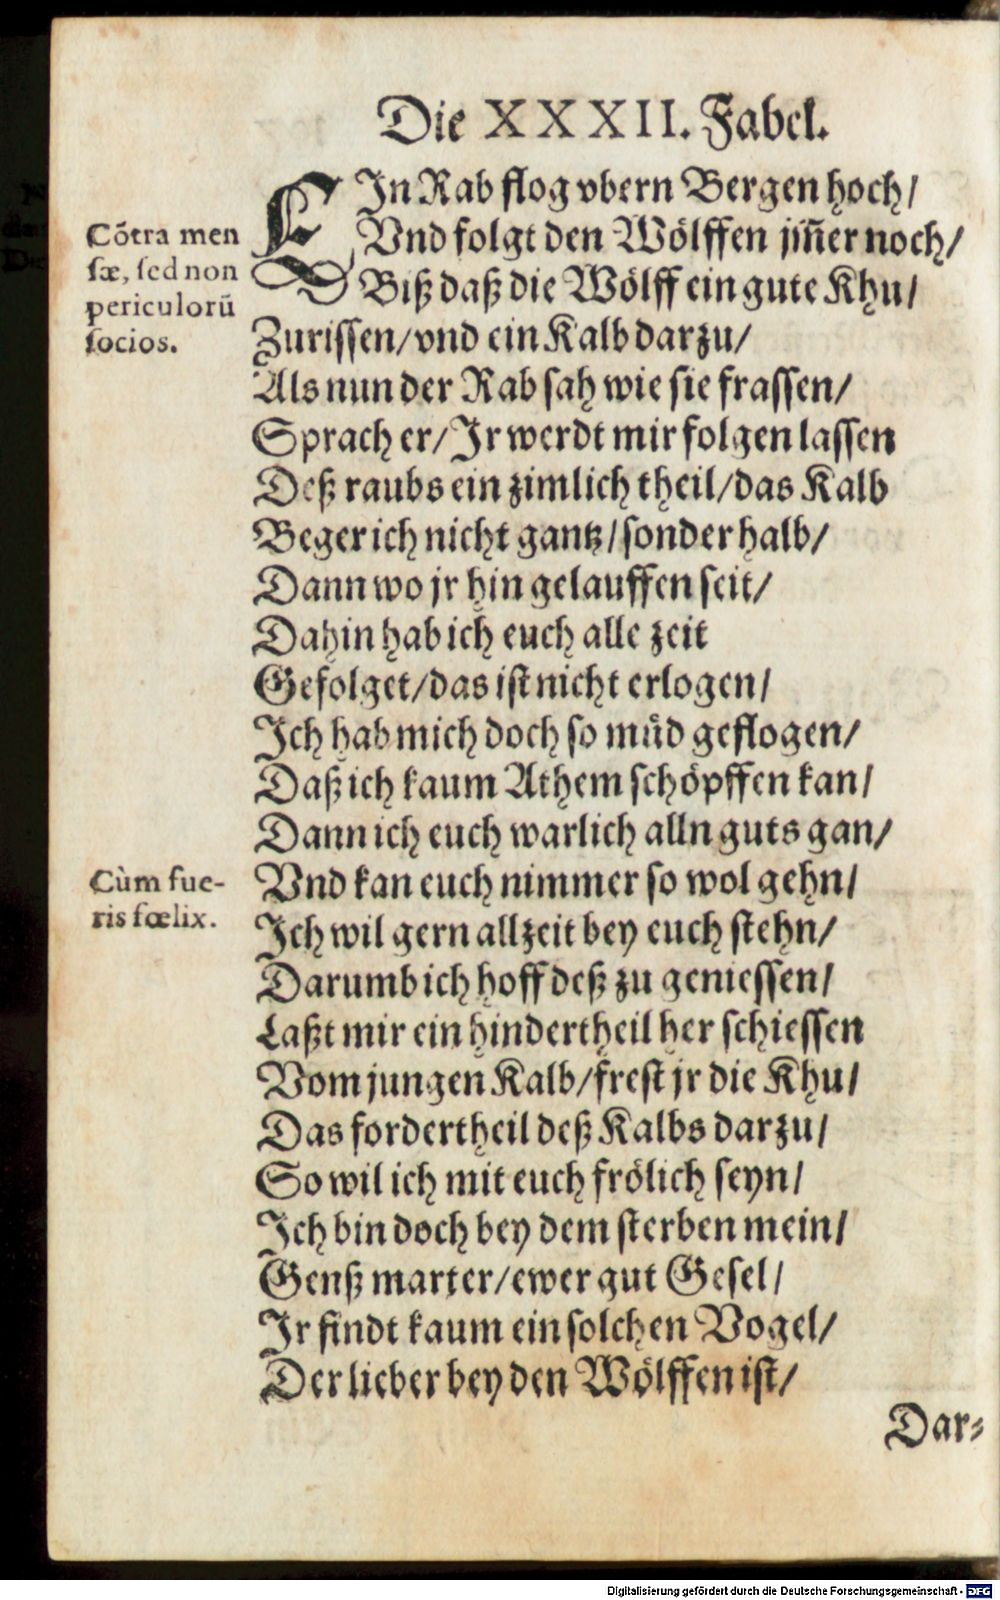 Die XXXII. Fabel.
EIn Rab flog vbern Bergen hoch/
Vnd folgt den Wölffen jm̃er noch/
Biß daß die Wölff ein gute Khu/
Zurissen/vnd ein Kalb darzu/
Als nun der Rab sah wie sie frassen/
Sprach er/Jr werdt mir folgen lassen
Deß raubs ein zimlich theil/das Kalb
Beger ich nicht gantz/sonder halb/
Dann wo jr hin gelauffen seit/
Dahin hab ich euch alle zeit
Gefolget/das ist nicht erlogen/
Ich hab mich doch so müd geflogen/
Daß ich kaum Athem schöpffen kan/
Dann ich euch warlich alln guts gan/
Vnd kan euch nimmer so wol gehn/
Ich wil gern allzeit bey euch stehn/
Darumb ich hoff deß zu geniessen/
Laßt mir ein hindertheil her schiessen
Vom jungen Kalb/frest jr die Khu/
Das fordertheil deß Kalbs darzu/
So wil ich mit euch frölich seyn/
Ich bin doch bey dem sterben mein/
Genß marter/ewer gut Gesel/
Ir findt kaum ein solchen Vogel/
Der lieber bey den Wölffen ist/
Dar-
Cõtra men
sæ, sed non
periculorũ
socios.
Cùm fue-
ris fœlix.
Digitalisierung gefördert durch die Deutsche Forschungsgemeinschaft - DFG